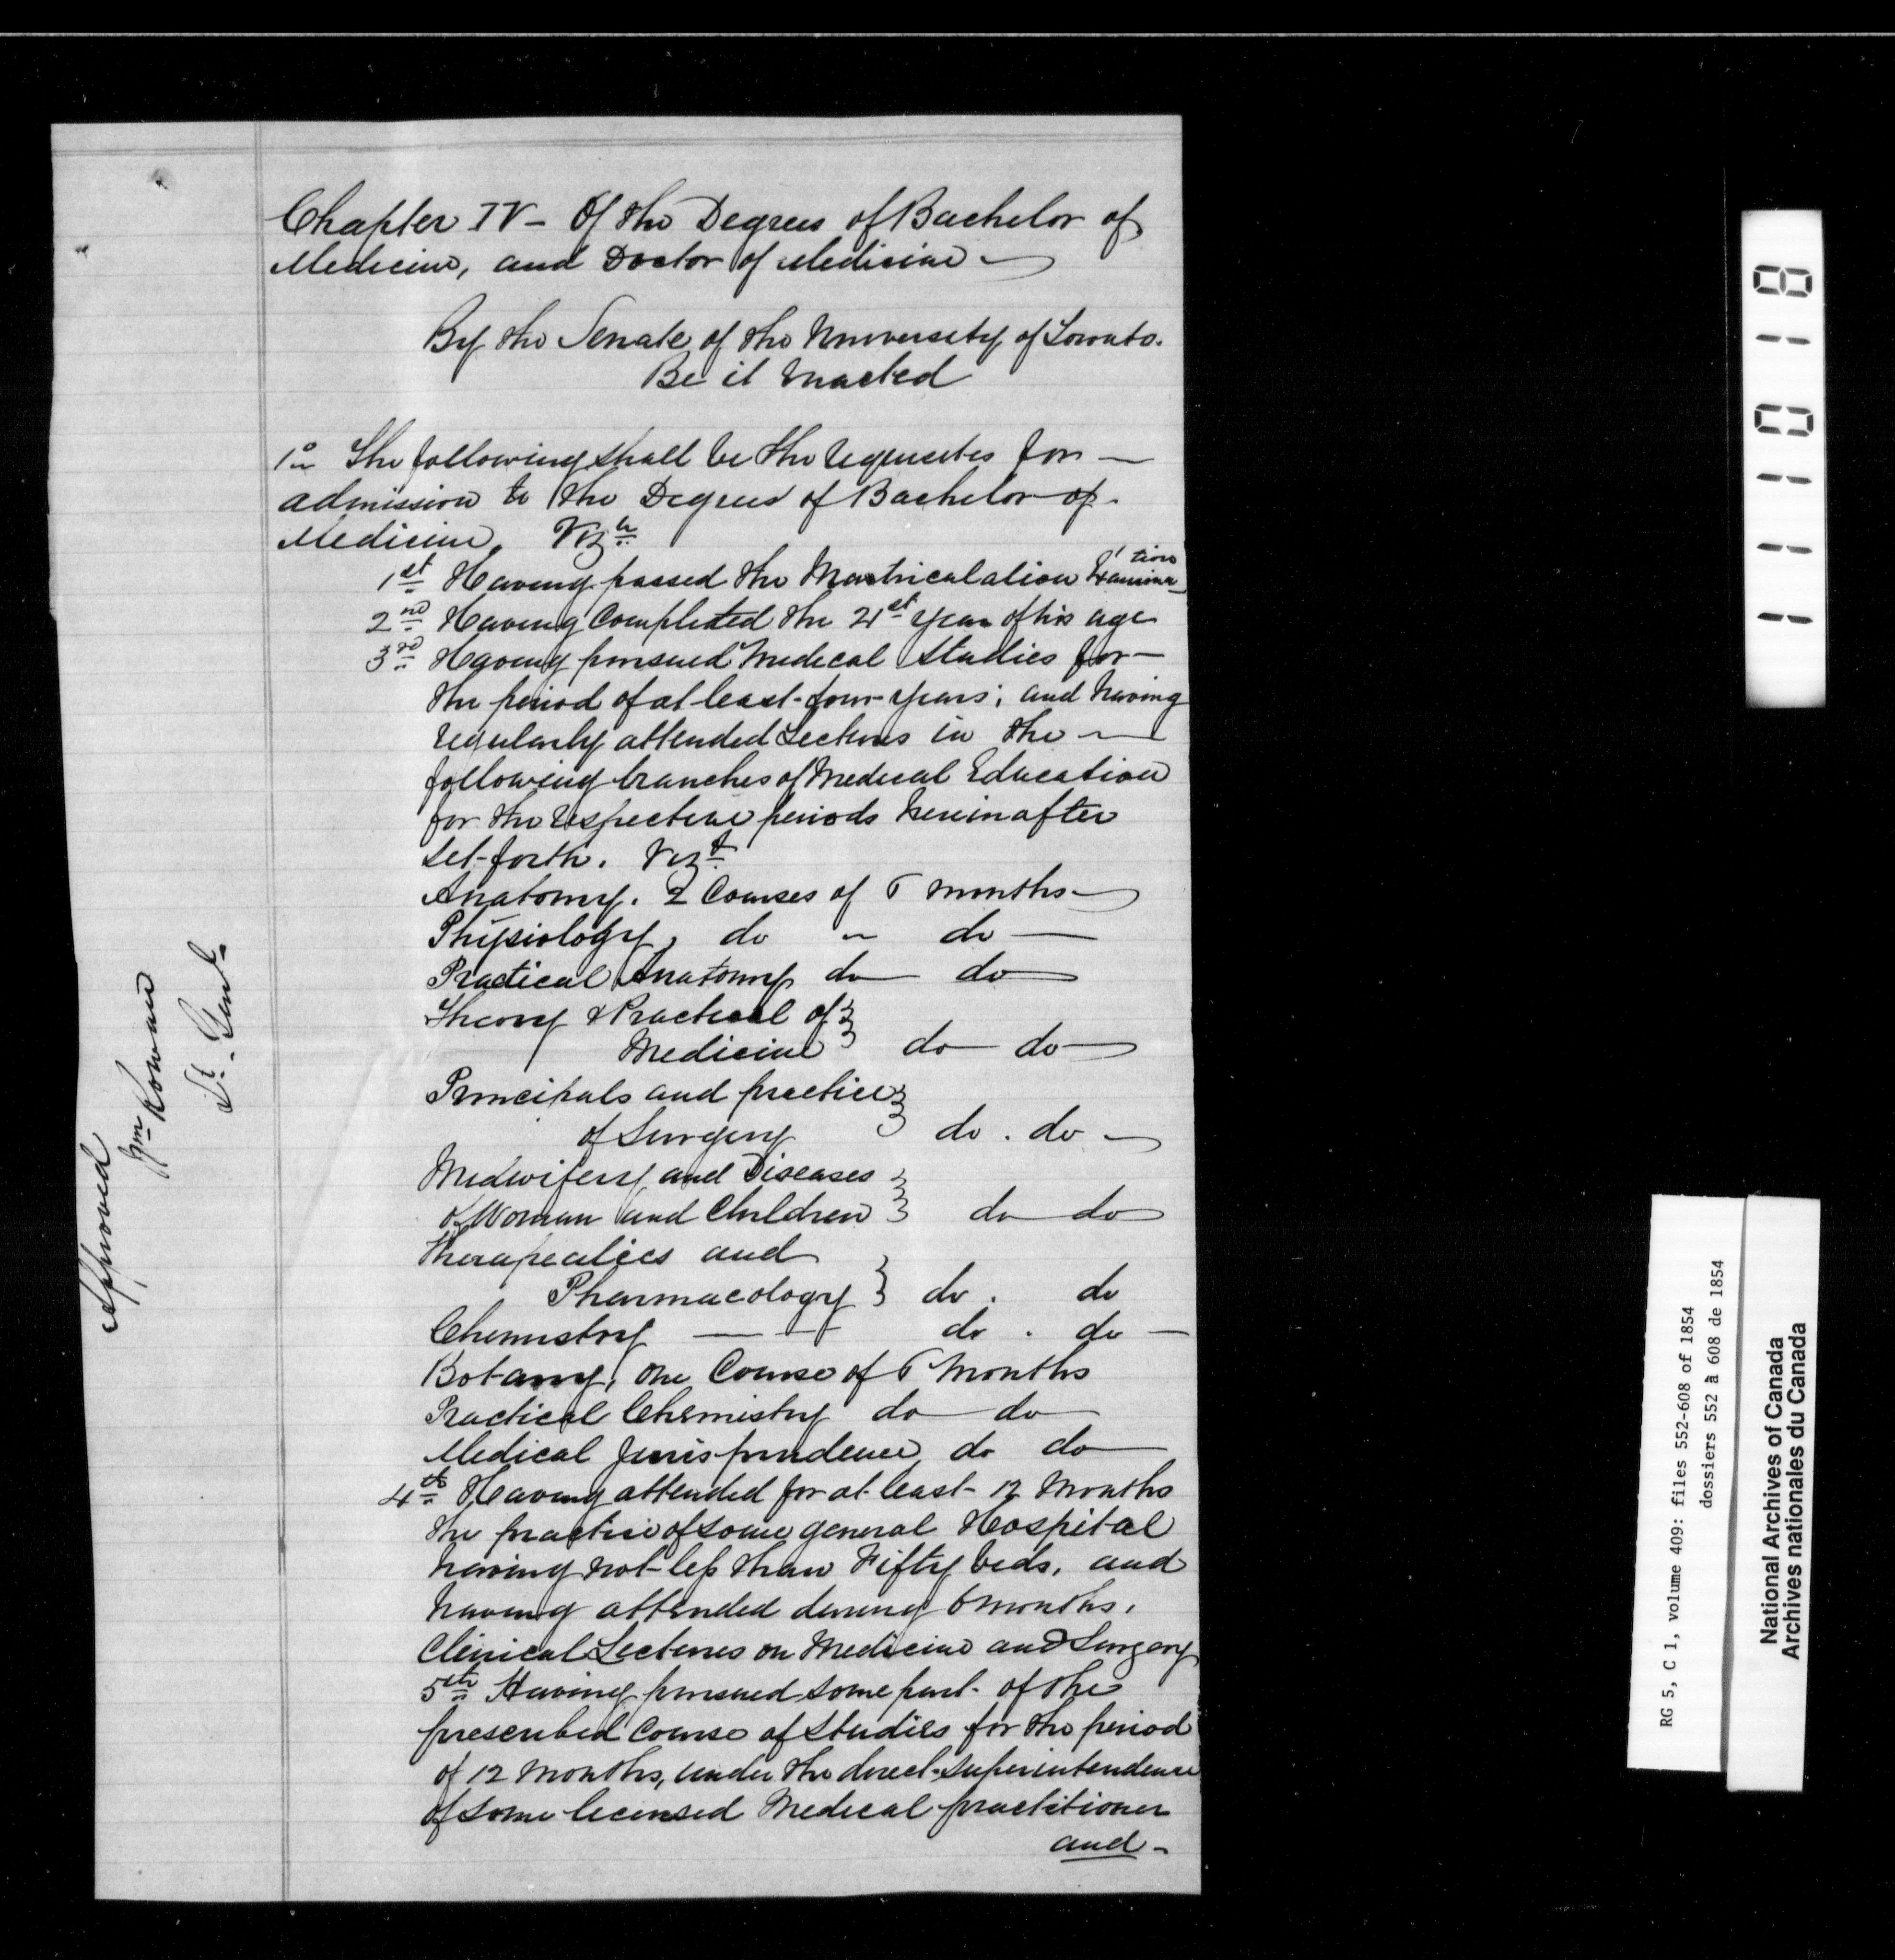 Chapter IV - Of the Degrees of Bachelor of
Medicine, and Doctor of Medicine
By the Senate of the University of Toronto.
Be it Enacted
1o The following shall be the requesites for
admission to the Degree of Bachelor of
Medicine. Vizt
1st Having passed the Matriculation Examination
2nd Having Completed the 21st year of his age
3rd Having pursued Medical Studies for
the period of at least four years; and having
regularly attended Lectures in the
following branches of Medical Education
for the respective periods hereinafter
set forth. Vizt
Anatomy. 2 Courses of 6 months
Physiology, do " do
Practical Anatomy do do
Theory & Practical of
Medicine do do
Principals and practice
of Surgery do . do
Midwifery and Diseases
of Woman and Children do do
Therapeutics and
Pharmacology do . do
Chemistry do . do
Botany, One Course of 6 Months
Practical Chemistry do do
Medical Jurisprudence do do
4th Having attended for at least 12 Months
the practice of some general Hospital
having not less than Fifty beds, and
having attended during 6 months,
Clinical Lectures on Medicine and Surgery
5th Having pursued some part of the
prescribed Course of Studies for the period
of 12 Months, under the direct superintendence
of some licensed Medical practitioner
and
Approved
Wm Rowan
Lt. Genl.
1 1 1 0 1 8
RG 5, C 1, volume 409: files 552-608 of 1854
dossiers 552 à 608 de 1854
National Archives of Canada
Archives nationales du Canada